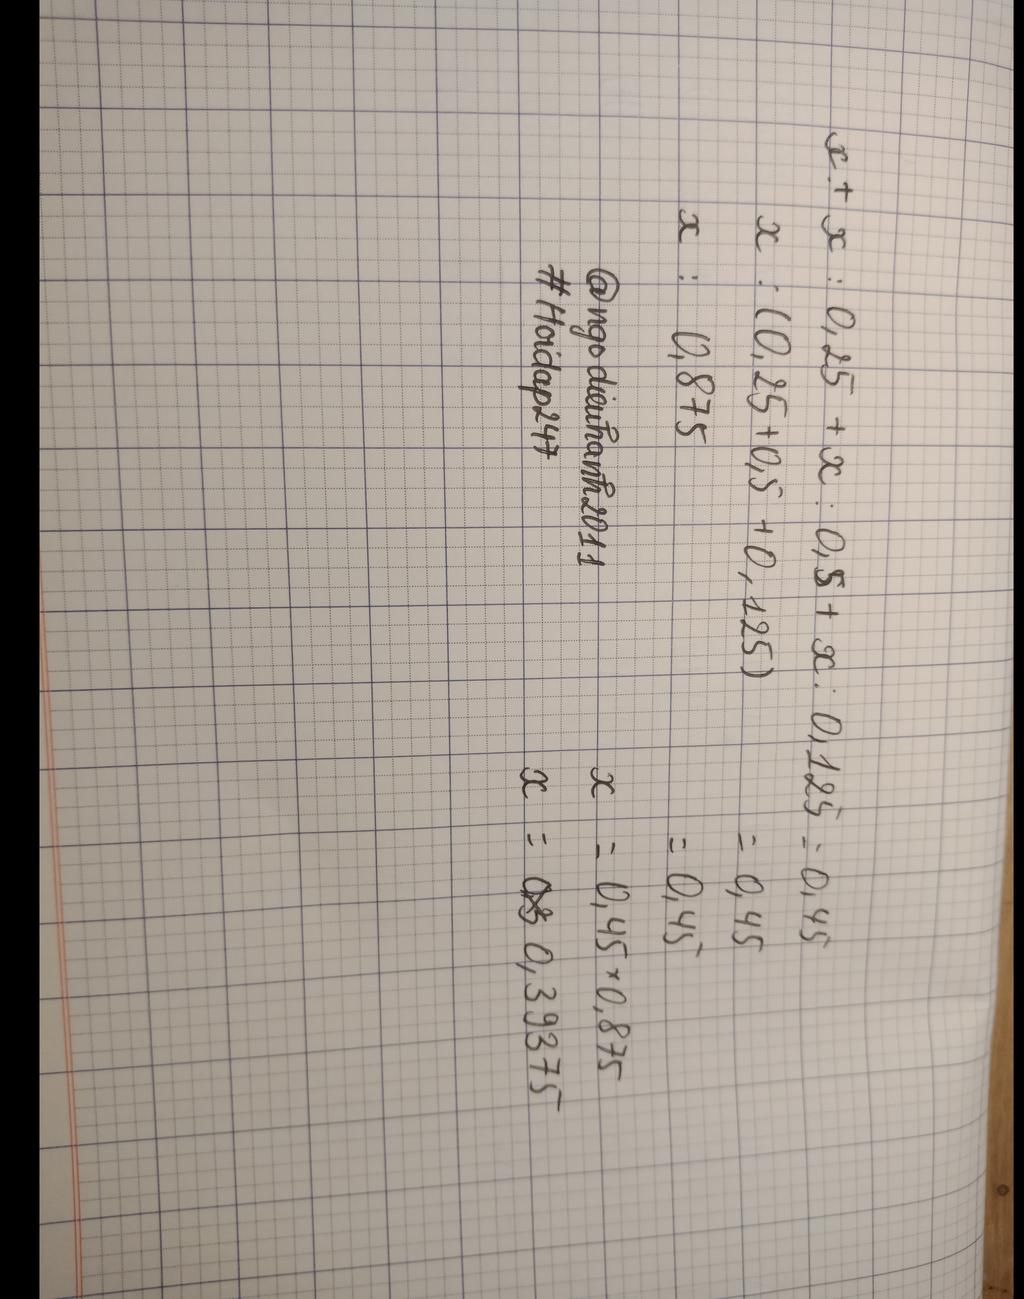 x + x : 0,25 + x : 0,5 + x : 0,125 = 0,45
x : (0,25+0,5 +0,125) = 0,45
x : 0,875 = 0,45
@ngodieuhanh2011 x = 0,45 × 0,875
#Hoidap247 x = 0,39375